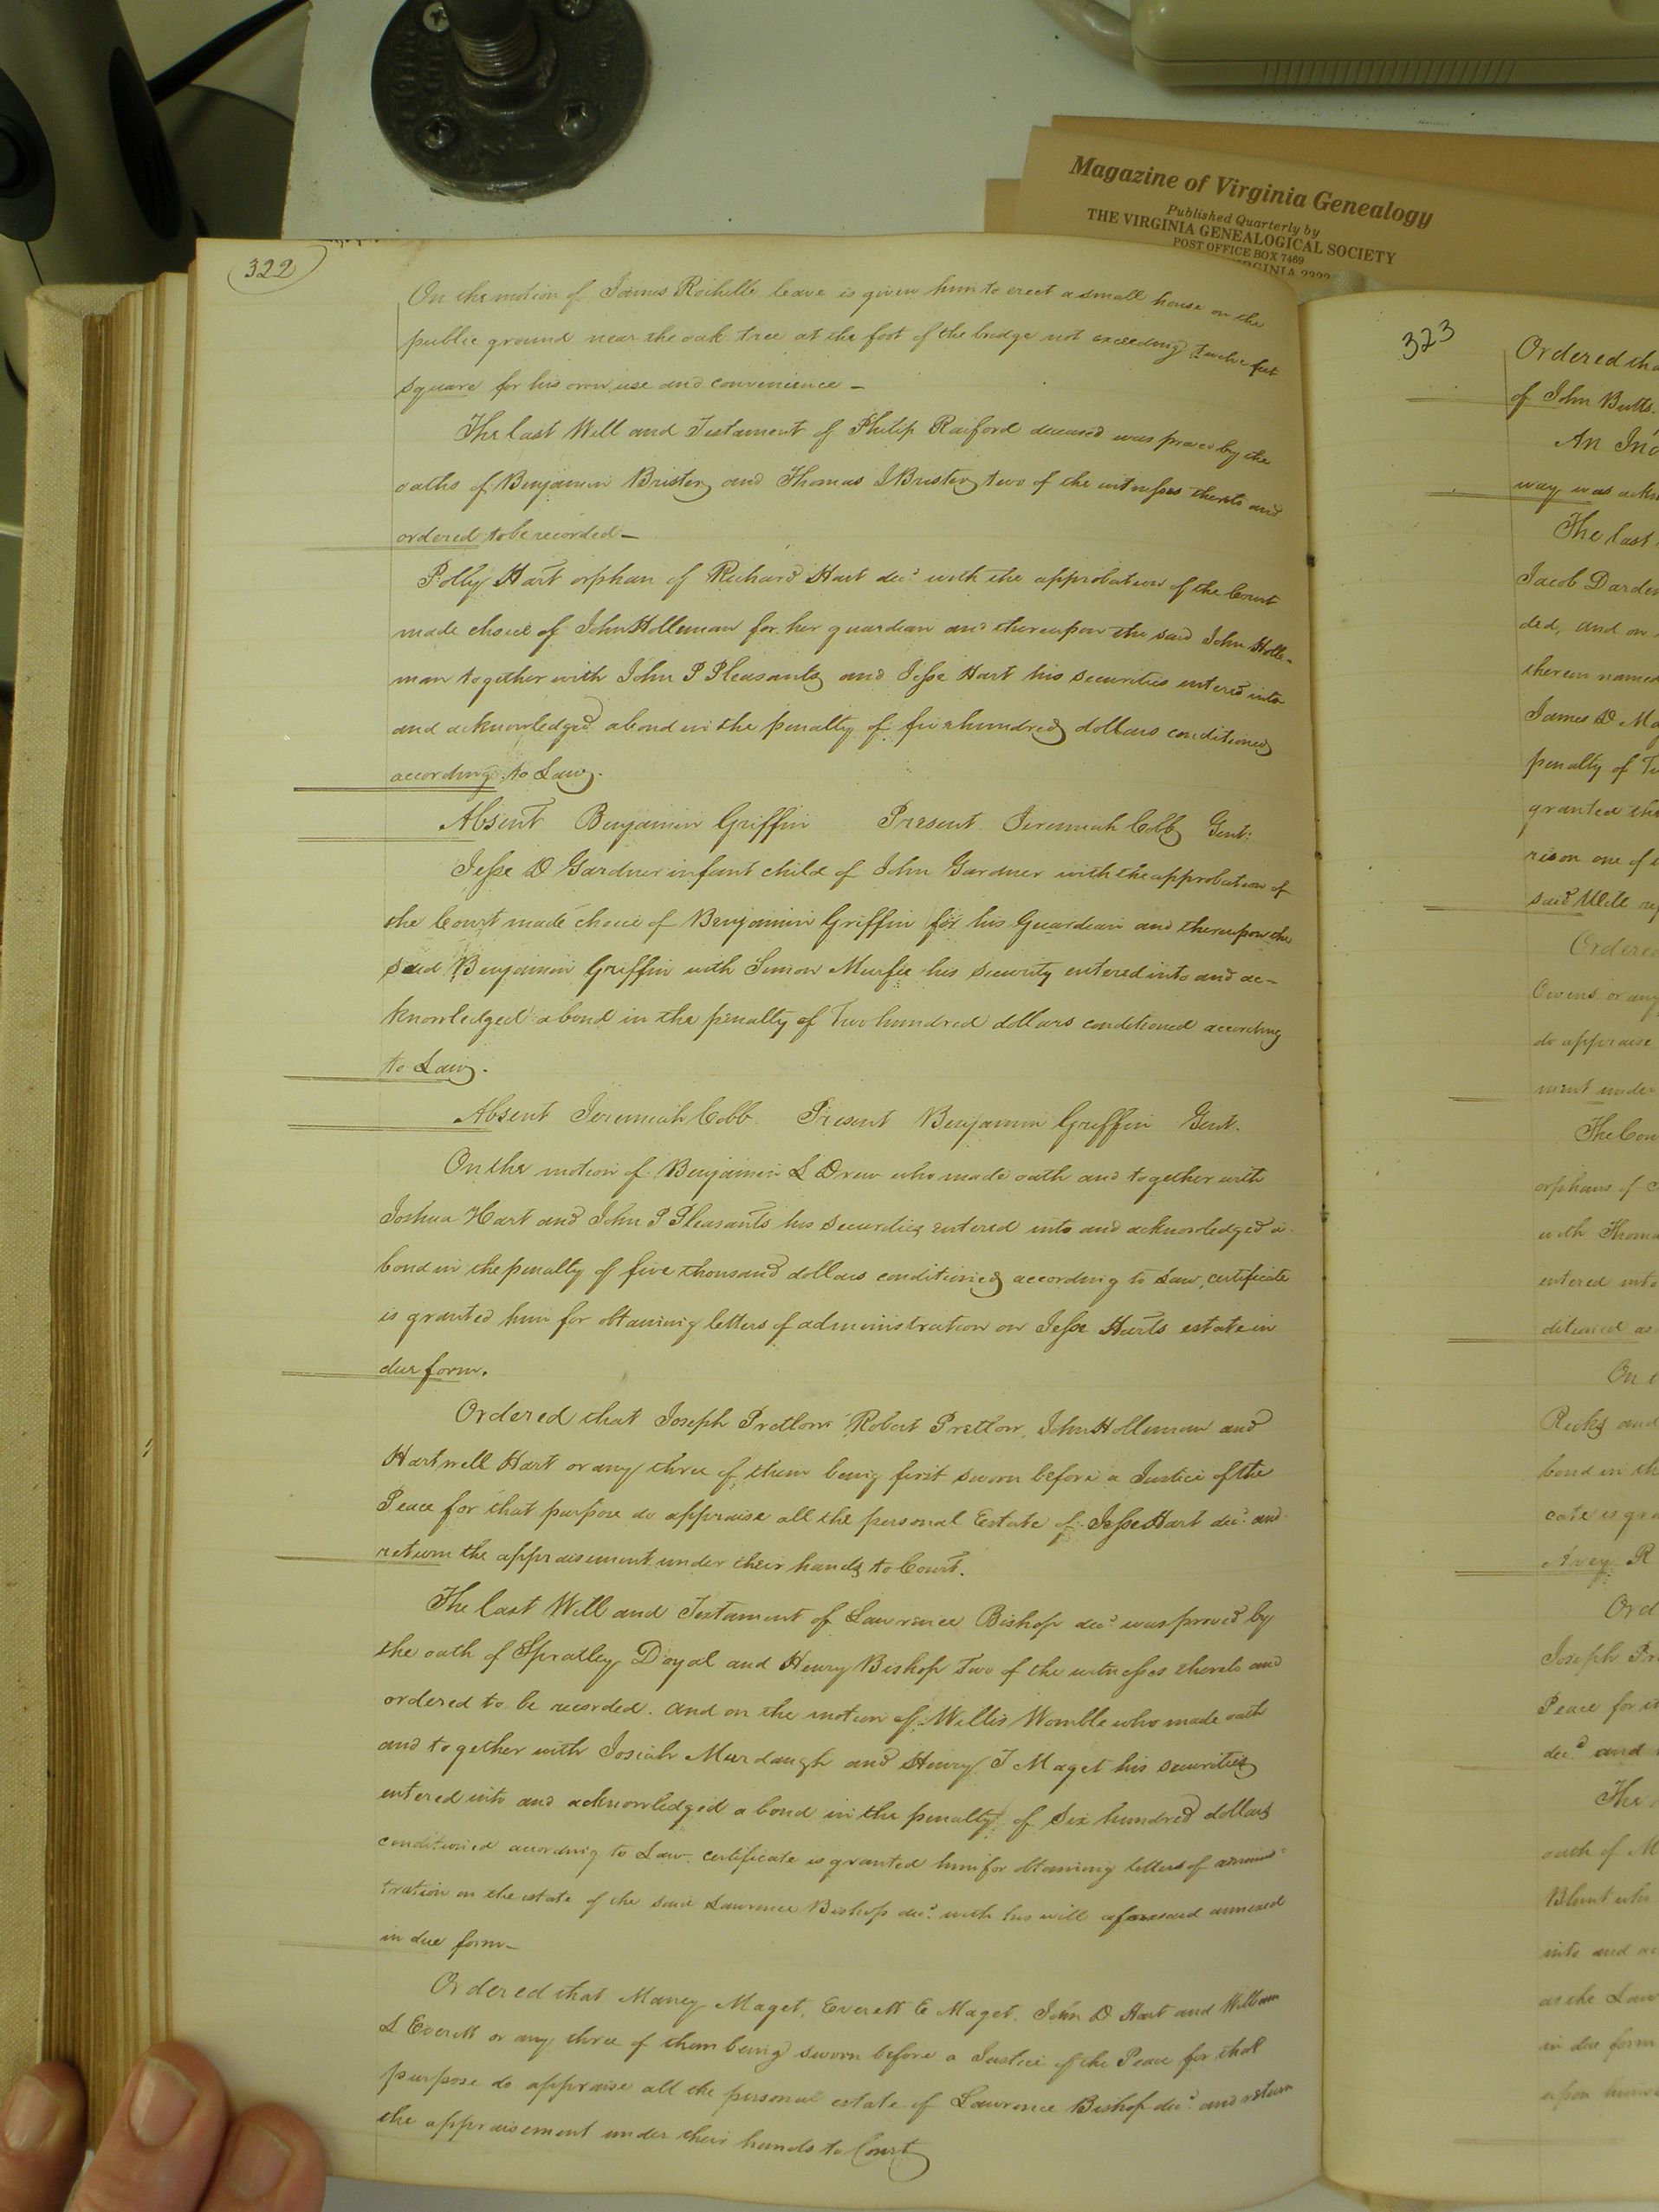 Magazine of Virginia Genealogy
Published Quarterly by
THE VIRGINIA GENEALOGICAL SOCIETY
POST OFFICE BOX 7469
322
On the motion of James Rochelle leave is given him to erect a small house on the
public ground near the oak tree at the foot of the bridge not exceeding twelve feet
square for his own use and convenience –
The last Will and Testament of Philip Raiford deceased was proved by the
oaths of Benjamin Brister and Thomas J Bristor two of the witnesses thereto and
ordered to be recorded –
Polly Hart orphan of Richard Hart decd with the approbation of the Court
made choice of John Holleman for her guardian and thereupon the said John Holle-
man together with John P Pleasants and Jesse Hart his securities entered into
and acknowledged a bond in the penalty of five hundred dollars conditioned
according to Law.
Absent Benjamin Griffin Present Jeremiah Cobb Gent:
Jesse D Gardner infant child of John Gardner with the approbation of
the Court made choice of Benjamin Griffin for his Guardian and thereupon the
said Benjamin Griffin with Simon Murfee his security entered into and ac-
knowledged a bond in the penalty of Two hundred dollars conditioned according
to Law.
Absent Jeremiah Cobb. Present Benjamin Griffin Gent.
On the motion of Benjamin L Drew who made oath and together with
Joshua Hart and John P Pleasants his securities entered into and acknowledged a
bond in the penalty of five thousand dollars conditioned according to Law, certificate
is granted him for obtaining letters of administration on Jesse Harts estate in
due form.
Ordered that Joseph Pretlow Robert Pretlow, John Holleman and
Hartwell Hart or any three of them being first sworn before a Justice of the
Peace for that purpose do appraise all the personal Estate of Jesse Hart decd and
return the appraisement under their hands to Court.
The last Will and Testament of Lawrence Bishop decd was proved by
the oath of Spratley Doyal and Henry Bishop Two of the witnesses thereto and
ordered to be recorded. and on the motion of Willis Womble who made oath
and together with Josiah Murdaugh and Henry J Maget his securities
entered into and acknowledged a bond in the penalty of Six hundred dollars
conditioned according to Law. certificate is granted him for obtaining letters of adminis-
tration on the estate of the said Lawrence Bishop decd with his will aforesaid annexed
in due form –
Ordered that Maney Maget, Everett E Maget, John D Hart and William
L Everett or any three of them being sworn before a Justice of the Peace for that
purpose do appraise all the personal estate of Lawrence Bishop decd and return
the appraisement under their hands to Court
323
Ordered tha
of John Butts.
An Ind
way was ackn
The last
Jacob Darden
ded, and on
therein named
James D Ma
penalty of Tw
granted the
rison one of t
said Will
Ordered
Owens or any
do appraise
ment under
The Cou
orphans of
with Thoma
entered into
ditioned as
On t
Ricks and
bond in th
cate is gra
Ord
Joseph Pr
Peace for th
decd and
The
oath of M
Blunt who
into and ac
as the Law
in due form